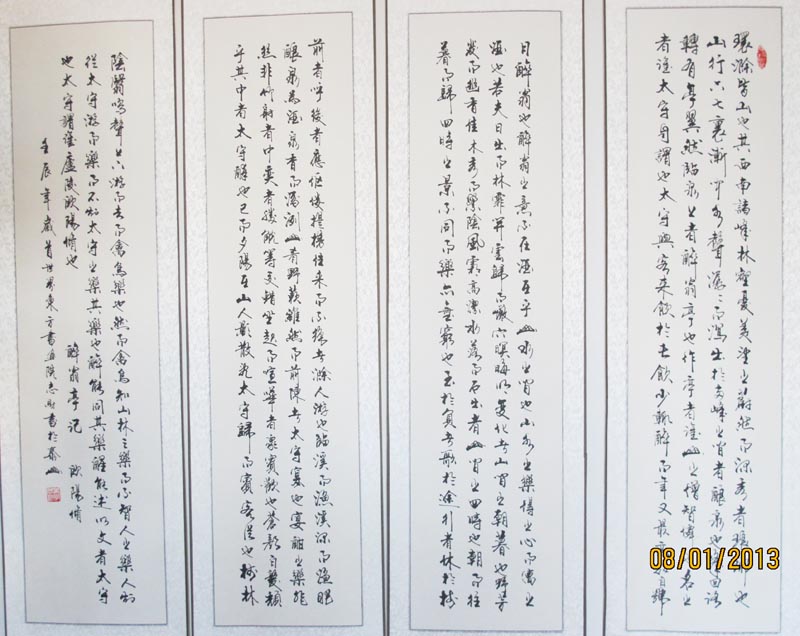 環滁皆山也其西南諸峰林壑憂美望之蔚然而深秀者瑯琊也
山行六七裏漸聞水聲潺〻而瀉出於兩峰之間者釀泉也峰回路
轉有亭翼然臨泉上者醉翁亭也作亭者誰山之僧智僊也名之
者誰太守自謂也太守與客來飲於此飲少輒醉而年又最高故自號
曰醉翁也醉翁之意不在酒在乎山水之間也山水之樂得之心而寓之
酒也若夫日出而林霏開雲歸而巖穴暝晦明變化者山間之朝暮也野芳
發而幽香佳木秀而繁陰風霜高潔水落而石出者山間之四時也朝而往
暮而歸四時之景不同而樂亦無窮也至於負者歌於途行者休於樹
前者呼後者應傴僂提攜往來而不絕者滁人游也臨溪而漁溪深而漁肥
釀泉為酒泉香而酒洌山肴野蔌雜然而前陳者太守宴也宴酣之樂非
絲非竹射者中奕者勝觥籌交錯坐起而喧嘩者衆賓歡也蒼顏白髮頹
乎其中者太守醉也已而夕陽在山人影散亂太守歸而賓客從也樹林
陰翳鳴聲上下游而去而禽鳥樂也然而禽鳥知山林之樂而不知人之樂人知
從太守游而樂而不知太守之樂其樂也醉能同其樂醒能述以文者太守
也太守謂誰廬陵歐陽脩也
醉翁亭記 歐陽脩
壬辰年歲首世界東方書畫院志 書於泰山
08/01/2013